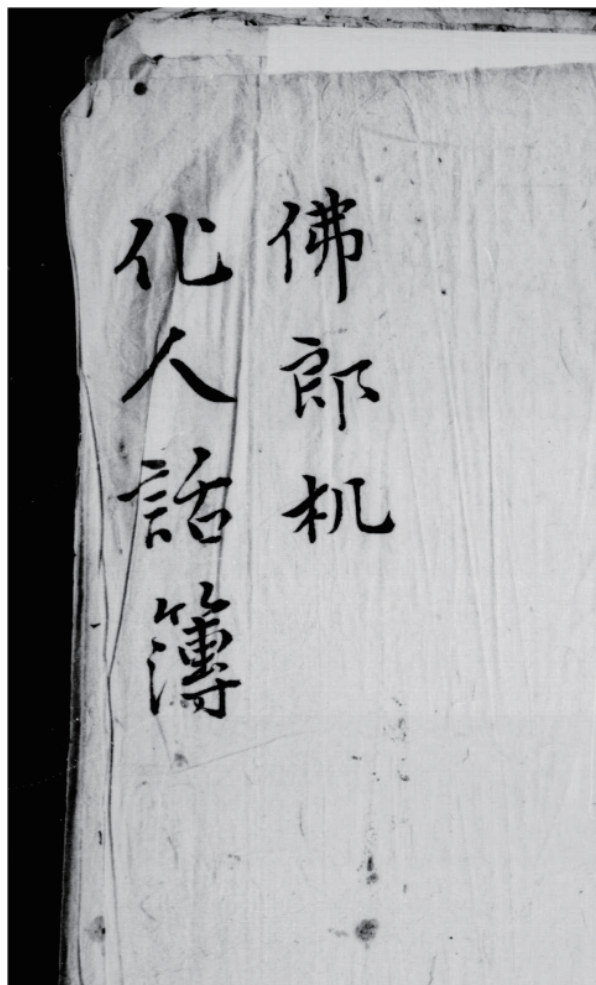 佛郎机
化人話簿